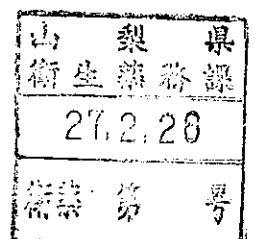 山梨県
衛生薬務課
27.2.26
衛薬第 号